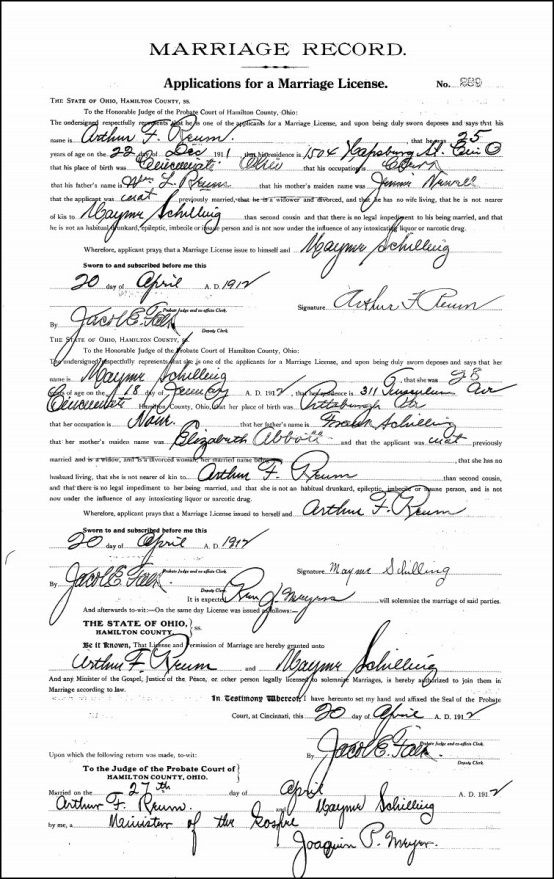 MARRIAGE RECORD.
Applications for a Marriage License. No. 289
THE STATE OF OHIO, HAMILTON COUNTY, SS.
To the Honorable Judge of the Probate Court of Hamilton County, Ohio:
The undersigned respectfully represents that he is one of the applicants for a Marriage License, and upon being duly sworn deposes and says that his
name is Arthur F. Reum. that he was 25
years of age on the 22 day of Dec 1911 that his residence is 1504 St. Cin O
that his place of birth was Cincinnati Ohio that his occupation is Clerk
that his father's name is Wm L Reum that his mother's maiden name was Jennie Newell
that the applicant was not previously married, that he is a widower and divorced, and that he has no wife living, that he is not nearer
of kin to Mayme Schilling than second cousin, and that there is no legal impediment to his being married, and that
he is not an habitual drunkard, epileptic, imbecile or insane person and is not now under the influence of any intoxicating liquor or narcotic drug.
Wherefore, applicant prays that a Marriage License issue to himself and Mayme Schilling
Sworn to and subscribed before me this
20 day of April A. D. 1912
Signature Arthur F Reum
Probate Judge and ex-officio Clerk.
By Jacob E. Falk
Deputy Clerk.
THE STATE OF OHIO, HAMILTON COUNTY, SS.
To the Honorable Judge of the Probate Court of Hamilton County, Ohio:
The undersigned respectfully represents that she is one of the applicants for a Marriage License, and upon being duly sworn deposes and says that her
name is Mayme Schilling that she was 28
years of age on the 18 day of A. D. 1912, that her residence is 311 Ave
Cincinnati Hamilton County, Ohio, that her place of birth was Pittsburgh
that her occupation is None that her father's name is Frank Schilling
that her mother's maiden name was Elizabeth Abbott and that the applicant was not previously
married and is a widow, and is a divorced woman, her married name being that she has no
husband living, that she is not nearer of kin to Arthur F. Reum than second cousin,
and that there is no legal impediment to her being married, and that she is not an habitual drunkard, epileptic, imbecile or insane person, and is not
now under the influence of any intoxicating liquor or narcotic drug.
Wherefore, applicant prays that a Marriage License issued to herself and Arthur F. Reum
Sworn to and subscribed before me this
20 day of April A. D. 1912
Signature Mayme Schilling
Probate Judge and ex-officio Clerk.
By Jacob E. Falk
Deputy Clerk.
It is expected Rev J. Meyers will solemnize the marriage of said parties.
And afterwards to wit:—On the same day License was issued as follows:—
THE STATE OF OHIO,
HAMILTON COUNTY, ss.
Be it Known, That License and Permission of Marriage are hereby granted unto
Arthur F Reum and Mayme Schilling
And any Minister of the Gospel, Justice of the Peace, or other person legally licensed to solemnize Marriages, is hereby authorized to join them in
Marriage according to law.
In Testimony Whereof, I have hereunto set my hand and affixed the Seal of the Probate
Court, at Cincinnati, this 20 day of April A. D. 1912
Probate Judge and ex-officio Clerk.
By Jacob E. Falk
Deputy Clerk.
Upon which the following return was made, to-wit:
To the Judge of the Probate Court of
HAMILTON COUNTY, OHIO.
Married on the 27th day of April A. D. 1912
Arthur F. Reum and Mayme Schilling
by me, a Minister of the Gospel
Joaquin P. Meyer.